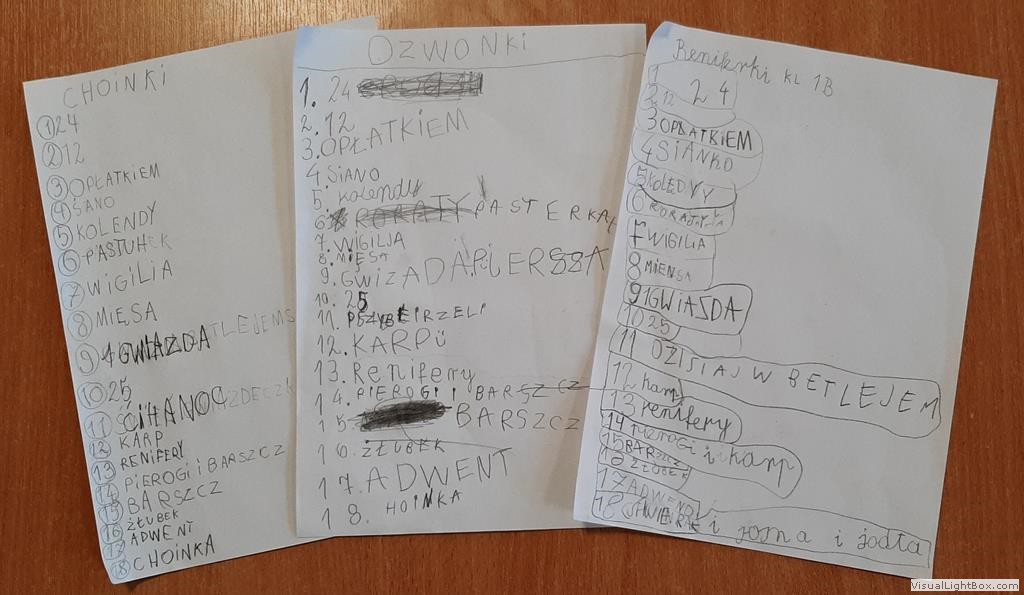 CHOINKI
1 24
2 12
3 OPŁATKIEM
4 SANO
5 KOLENDY
6 PASTUHEK
7 WIGILIA
8 MIĘSA
9 1 GWIAZDA
10 25
11 CIHANOC
12 KARP
13 RENIFERY
14 PIEROGI I BARSZCZ
15 BARSZCZ
16 ŻŁUBEK
17 ADWENT
18 CHOINKA
DZWONKI
1. 24
2. 12
3. OPŁATKIEM
4. SIANO
5. kolendy
6. RORATY PASTERKA
7. WIGILJA
8. MIĘSA
9. GWIZADAPIERSZA
10. 25
11. PSZYBEIRZELI
12. KARPÜ
13. Renifery
14. PIEROGI I BARSZCZ
15. BARSZCZ
16. ŻŁUBEK
17. ADWENT
18. HOINKA
Renikrki KL 1B
1 24
2 12
3 OPŁATKIEM
4 SIANKO
5 KOLĘDYY
6
7 WIGILIA
8 MIENSA
9 1 GWIAZDA
10 25
11 DZISIAJ W BETLEJEM
12
13 renifery
14 pierogi i karp
15 BARSZCZ
16 ŻŁUBEK
17 ADWENT
18 ŚWIERK i sosna i jodła
VisualLightBox.com